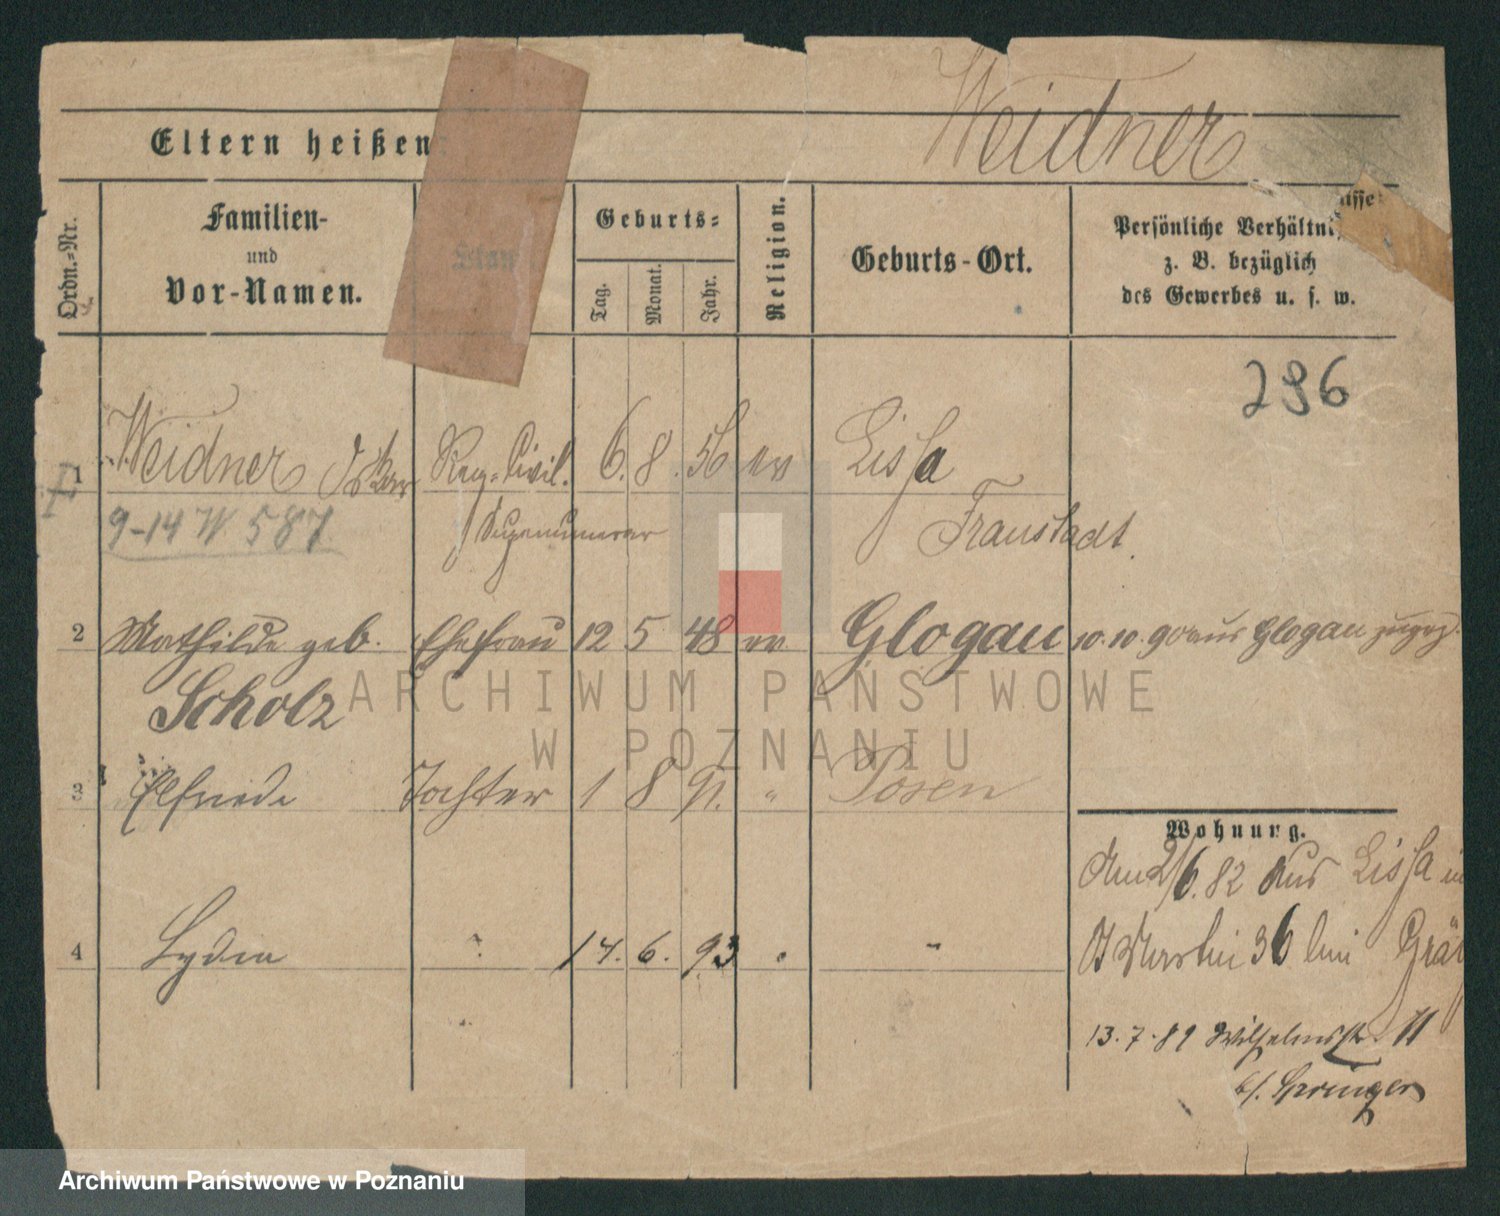 Weidner
Eltern heißen:
Ordn.-Nr.
Familien-
und
Vor-Namen.
Stand
Geburts-
Tag.
Monat.
Jahr.
Religion.
Geburts-Ort.
Persönliche Verhältnisse
z. B. bezüglich
des Gewerbes u. s. w.
296
1 Weidner Oskar Reg. Civil. 6. 8. 56 ev Lissa
9-14 W 587 Supernumerar Fraustadt.
2 Mathilde geb. Ehefrau 12 5 48 ev Glogau 10.10.90 aus Glogau zugez.
Scholz
3 Elfriede Tochter 1 8 91. " Posen
Wohnung.
Am 2/6.82 aus Lissa in
4 Lydia " 14. 6. 93 " "
St Martin 36 bei
13.7.89 Wilhelmstr. 11
b/. Springer
ARCHIWUM PAŃSTWOWE
W POZNANIU
Archiwum Państwowe w Poznaniu